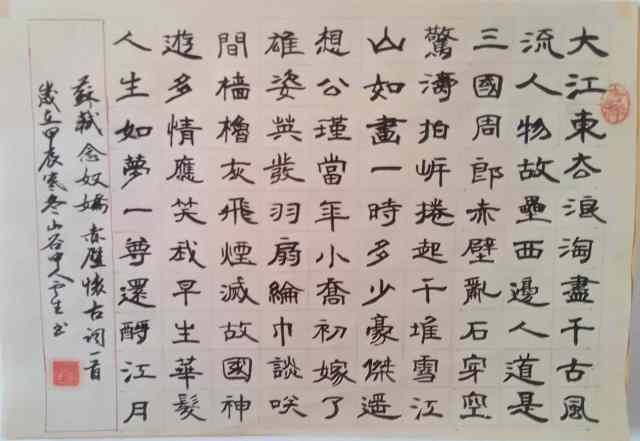 大江東去浪淘盡千古風
流人物故壘西邊人道是
三國周郎赤壁亂石穿空
驚濤拍岍捲起千堆雪江
山如畫一時多少豪傑遥
想公瑾當年小喬初嫁了
雄姿英發羽扇綸巾談咲
間檣櫓灰飛煙滅故國神
遊多情應笑我早生華髮
人生如夢一尊還酹江月
蘇軾念奴嬌赤壁懷古詞一首
歲在甲辰寒冬山谷中人雲生书